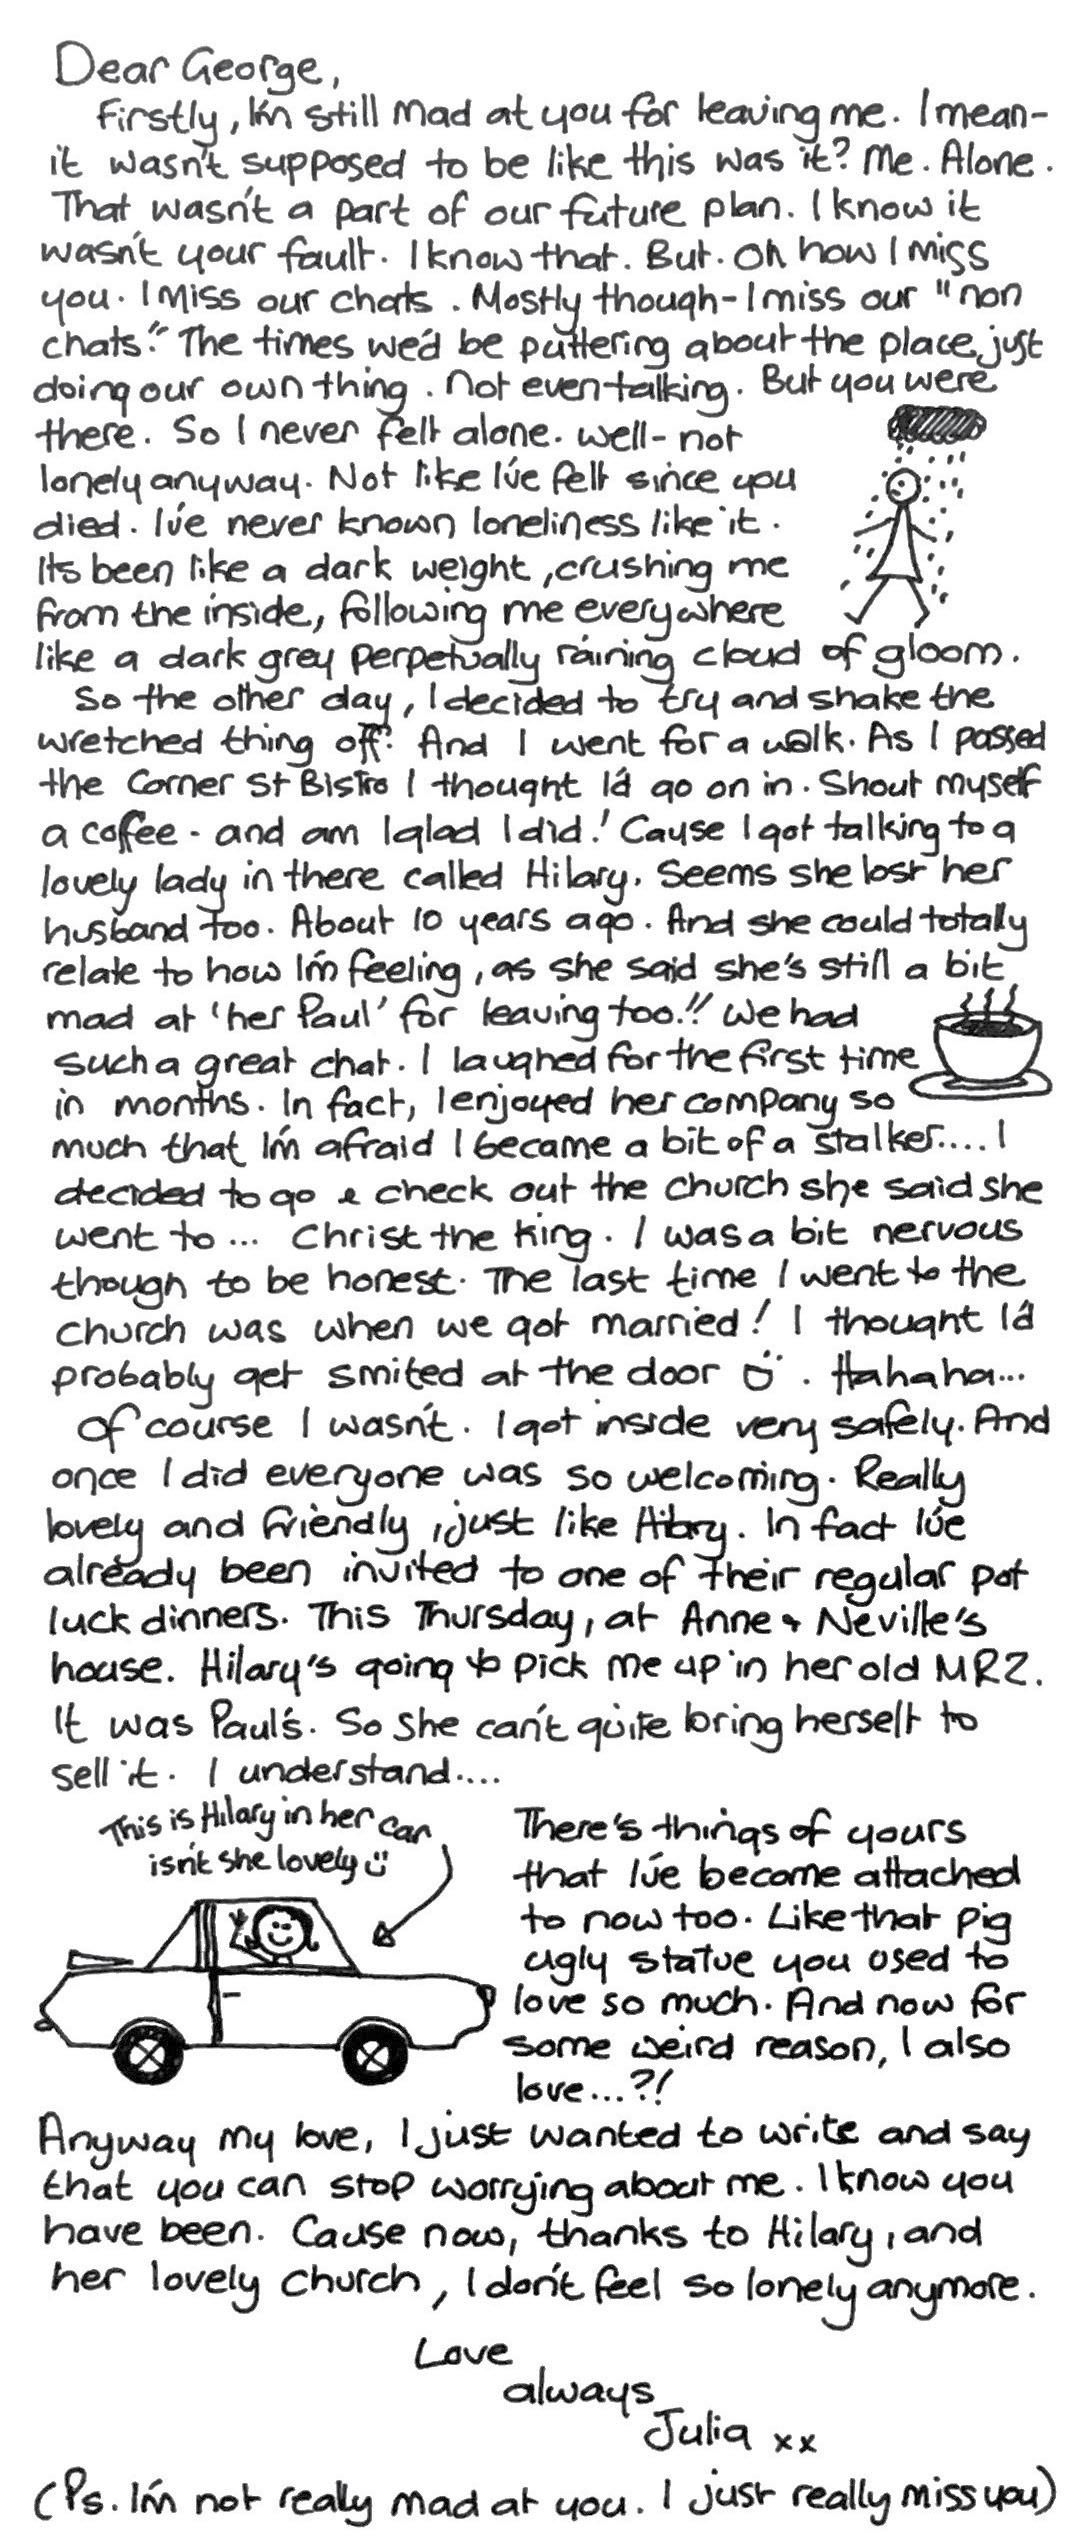 Dear George,
Firstly, I'm still mad at you for leaving me. I mean-
it wasn't supposed to be like this was it? Me. Alone.
That wasn't a part of our future plan. I know it
wasn't your fault. I know that. But. Oh how I miss
you. I miss our chats. Mostly though - I miss our "non
chats." The times we'd be puttering about the place, just
doing our own thing. Not even talking. But you were
there. So I never felt alone. Well - not
lonely anyway. Not like I've felt since you
died. I've never known loneliness like it.
Its been like a dark weight, crushing me
from the inside, following me everywhere
like a dark grey perpetually raining cloud of gloom.
So the other day, I decided to try and shake the
wretched thing off. And I went for a walk. As I passed
the Corner St Bistro I thought I'd go on in. Shout myself
a coffee - and am I glad I did! 'Cause I got talking to a
lovely lady in there called Hilary. Seems she lost her
husband too. About 10 years ago. And she could totally
relate to how I'm feeling, as she said she's still a bit
mad at 'her Paul' for leaving too!! We had
such a great chat. I laughed for the first time
in months. In fact, I enjoyed her company so
much that I'm afraid I became a bit of a stalker.... I
decided to go & check out the church she said she
went to... Christ the King. I was a bit nervous
though to be honest. The last time I went to the
church was when we got married! I thought I'd
probably get smited at the door . Hahaha...
Of course I wasn't. I got inside very safely. And
once I did everyone was so welcoming. Really
lovely and friendly, just like Hilary. In fact I've
already been invited to one of their regular pot
luck dinners. This Thursday, at Anne & Neville's
house. Hilary's going to pick me up in her old MR2.
It was Paul's. So she can't quite bring herself to
sell it. I understand....
This is Hilary in her car
isn't she lovely
There's things of yours
that I've become attached
to now too. Like that pig
ugly statue you used to
love so much. And now for
some weird reason, I also
love...?!
Anyway my love, I just wanted to write and say
that you can stop worrying about me. I know you
have been. Cause now, thanks to Hilary, and
her lovely church, I don't feel so lonely anymore.
Love
always
Julia xx
(Ps. I'm not really mad at you. I just really miss you)